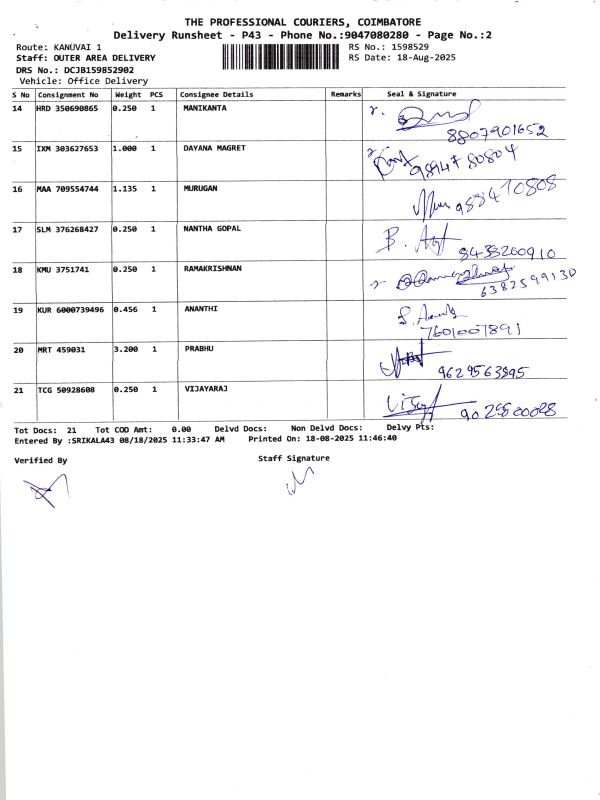 THE PROFESSIONAL COURIERS, COIMBATORE
Delivery Runsheet - P43 - Phone No.:9047080280 - Page No.:2
Route: KANUVAI 1 RS No.: 1598529
Staff: OUTER AREA DELIVERY RS Date: 18-Aug-2025
DRS No.: DCJB159852902
Vehicle: Office Delivery
S No Consignment No Weight PCS Consignee Details Remarks Seal & Signature
14 HRD 350690865 0.250 1 MANIKANTA
8807901652
15 IXM 303627653 1.000 1 DAYANA MAGRET
9894780804
16 MAA 709554744 1.135 1 MURUGAN
9884710808
17 SLM 376268427 0.250 1 NANTHA GOPAL B.
8438260910
18 KMU 3751741 0.250 1 RAMAKRISHNAN
6382599130
19 KUR 6000739496 0.456 1 ANANTHI
7601007891
20 MRT 459031 3.200 1 PRABHU
9629563895
21 TCG 50928608 0.250 1 VIJAYARAJ
Tot Docs: 21 Tot COD Amt: 0.00 Delvd Docs: Non Delvd Docs: Delvy Pts:
Entered By :SRIKALA43 08/18/2025 11:33:47 AM Printed On: 18-08-2025 11:46:40
Verified By Staff Signature